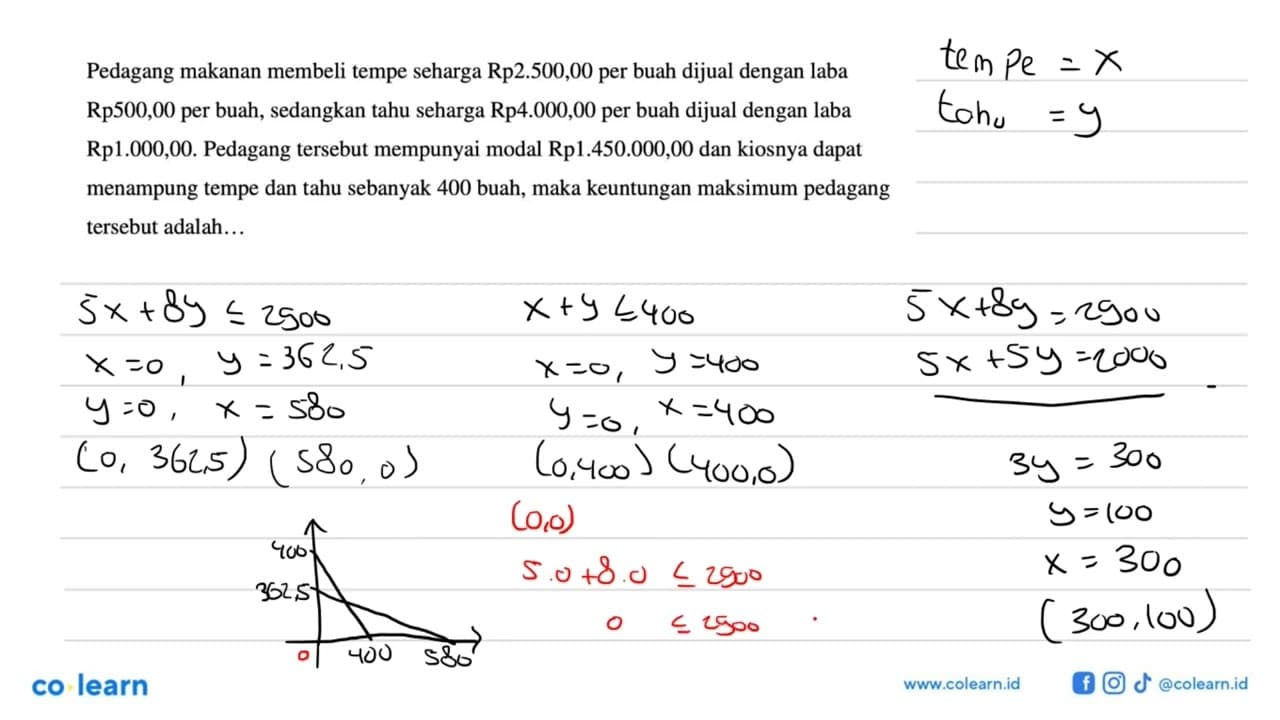 Pedagang makanan membeli tempe seharga Rp2.500,00 per buah dijual dengan laba
Rp500,00 per buah, sedangkan tahu seharga Rp4.000,00 per buah dijual dengan laba
Rp1.000,00. Pedagang tersebut mempunyai modal Rp1.450.000,00 dan kiosnya dapat
menampung tempe dan tahu sebanyak 400 buah, maka keuntungan maksimum pedagang
tersebut adalah...
tempe = x
tahu = y
5x + 8y ≤ 2900
x = 0, y = 362,5
y = 0, x = 580
(0, 362,5) (580, 0)
x + y ≤ 400
x = 0, y = 400
y = 0, x = 400
(0,400) (400,0)
5x + 8y = 2900
5x + 5y = 2000
-
3y = 300
y = 100
x = 300
(300, 100)
(0,0)
5.0 + 8.0 ≤ 2900
0 ≤ 2900
400
362,5
0 400 580
co learn
www.colearn.id
@colearn.id